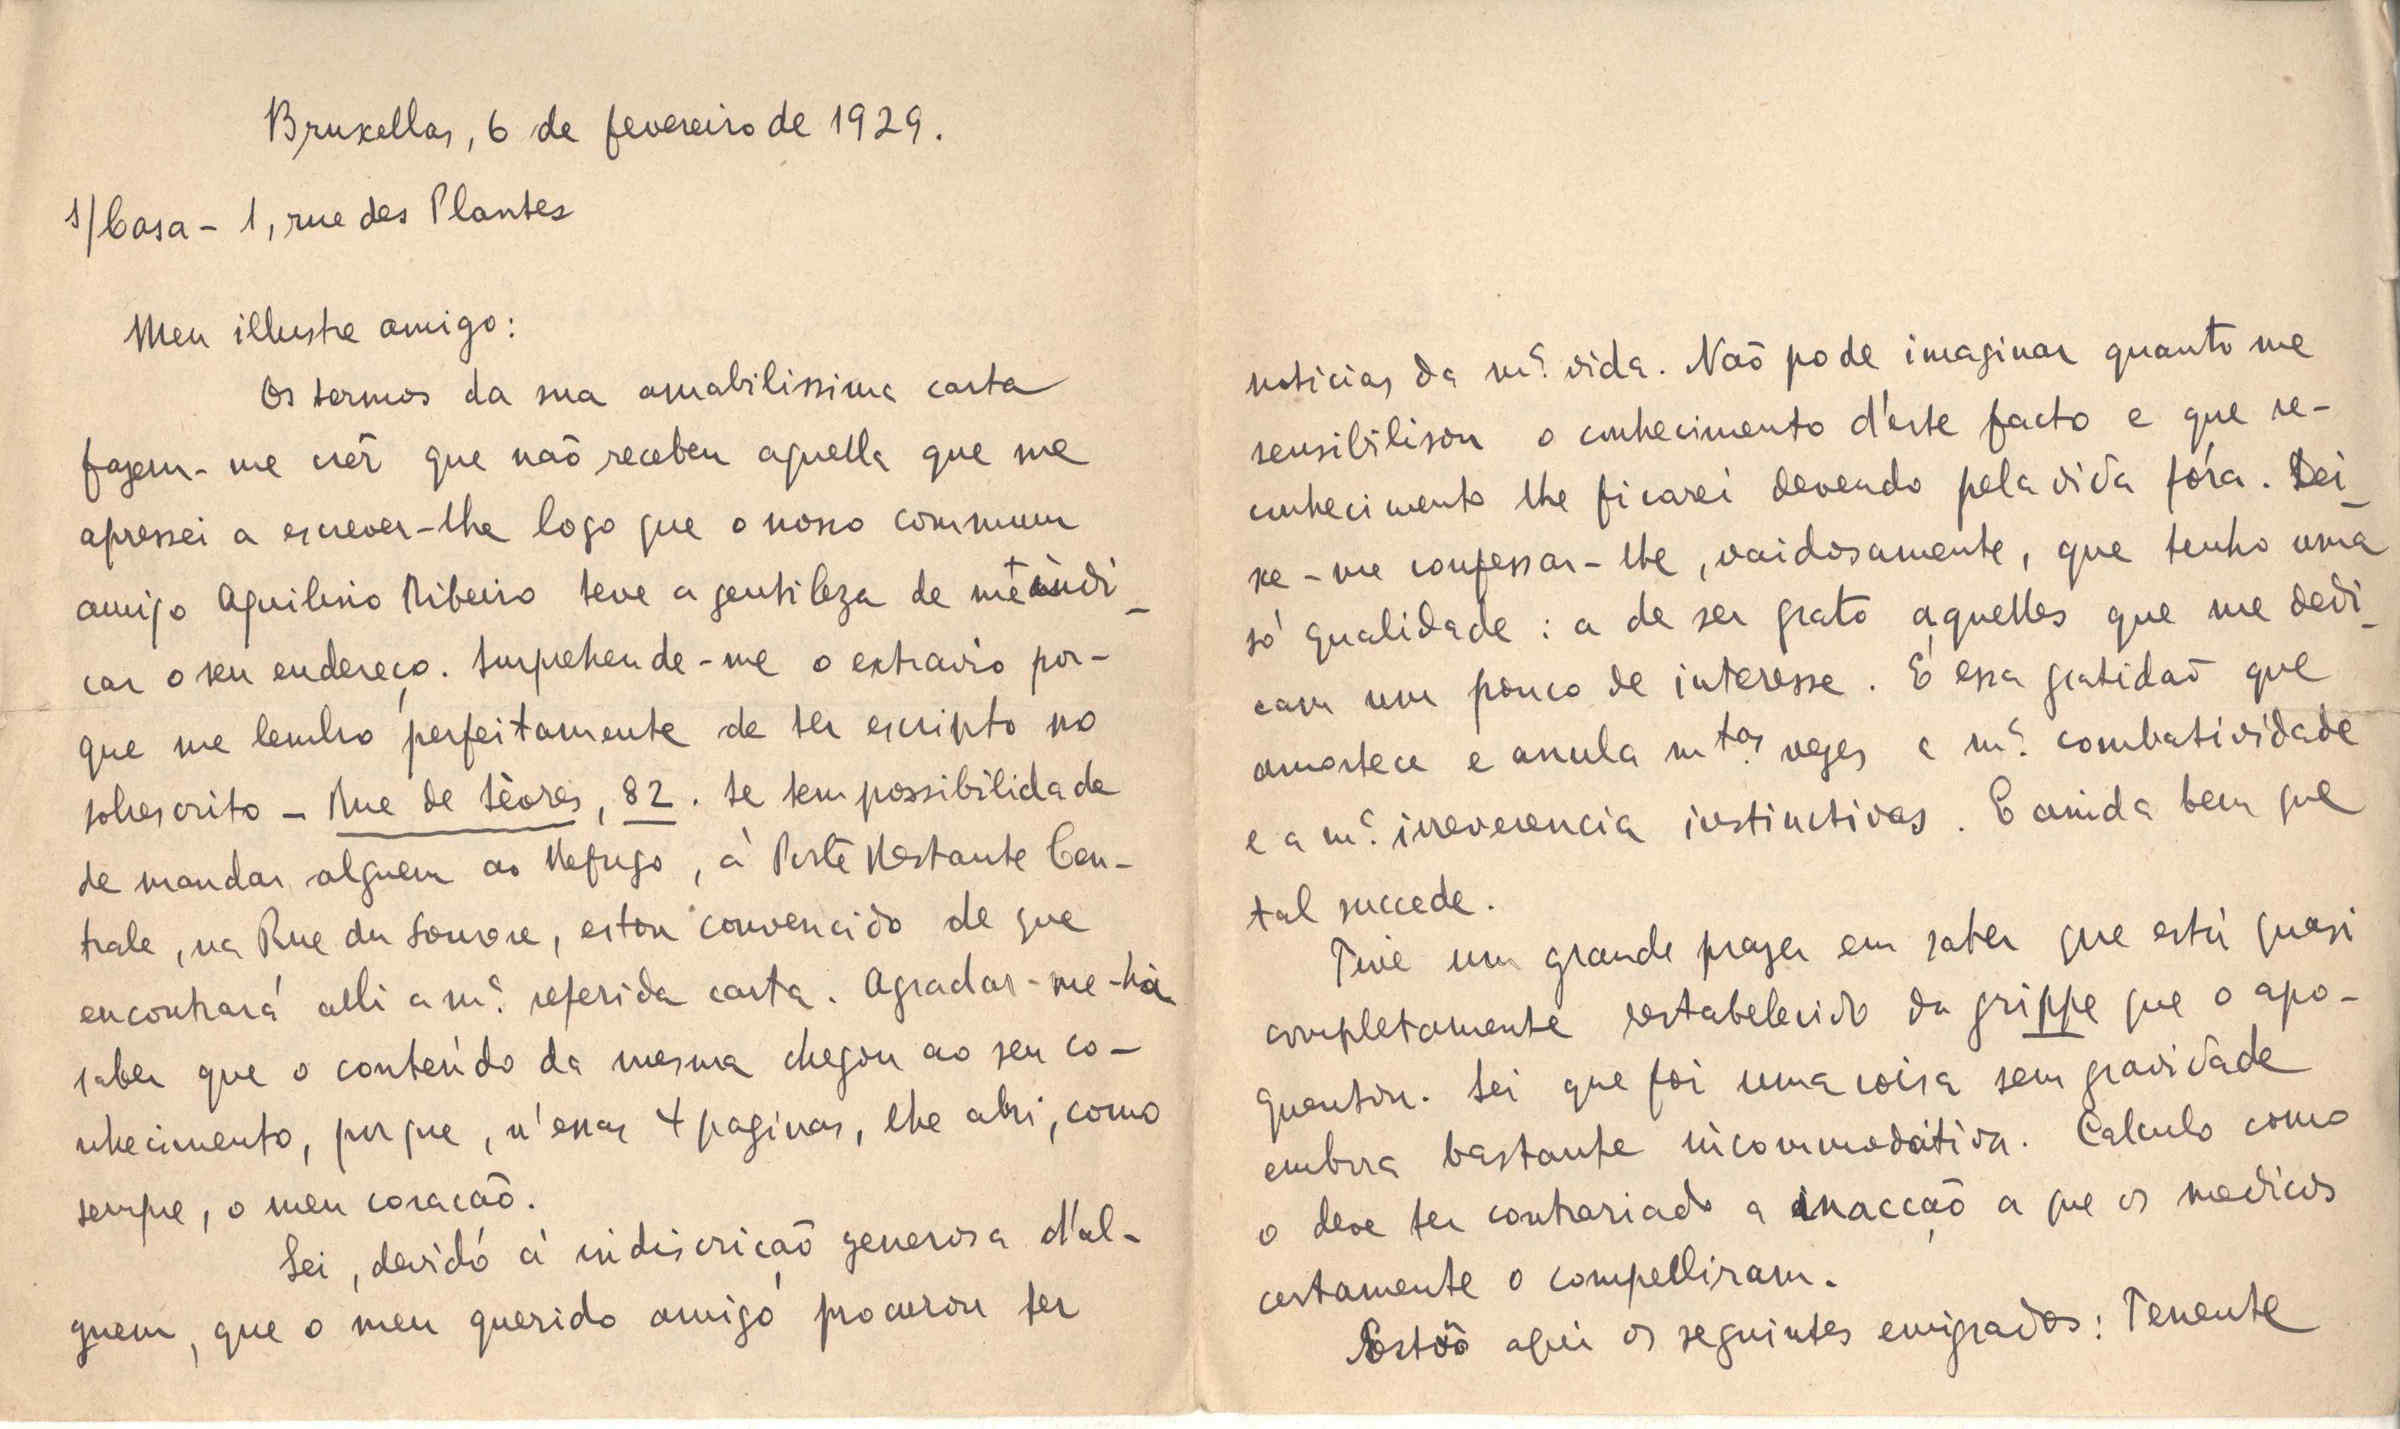 Bruxellas, 6 de fevereiro de 1929.
s/Casa - 1, rue des Plantes
Meu illustre amigo:
Os termos da sua amabilissima carta
fazem-me crêr que não recebeu aquella que me
apressei a escrever-lhe logo que o nosso commum
amigo Aquilino Ribeiro teve a gentileza de me indi-
car o seu endereço. Surprehende-me o extravio por-
que me lembro perfeitamente de ter escripto no
sobrescrito - Rue de Sèvres, 82. Se tem possibilidade
de mandar alguem ao Refugo, á Poste Restante Cen-
trale, na Rue du Louvre, estou convencido de que
encontrará alli a mª. referida carta. Agradar-me-há
saber que o conteúdo da mesma chegou ao seu co-
nhecimento, porque, n'essas 4 paginas, lhe abri, como
sempre, o meu coração.
Sei, devido á indiscrição generosa d'al-
guem, que o meu querido amigo procurou ter
noticias da mª. vida. Não pode imaginar quanto me
sensibilisou o conhecimento d'este facto e que re-
conhecimento lhe ficarei devendo pela vida fóra. Dei-
xe-me confessar-lhe, vaidosamente, que tenho uma
só qualidade: a de ser grato áquelles que me dedi-
cam um pouco de interesse. É essa gratidão que
amortece e anula mtas. vezes a mª. combatividade
e a mª. irreverencia instinctivas. E ainda bem que
tal succede.
Tive um grande prazer em saber que está quasi
completamente restabelecido da grippe que o apo-
quentou. Sei que foi uma coisa sem gravidade
embora bastante incommodativa. Calculo como
o deve ter contrariado a inacção a que os medicos
certamente o compelliram.
Estão aqui os seguintes emigrados: Tenente